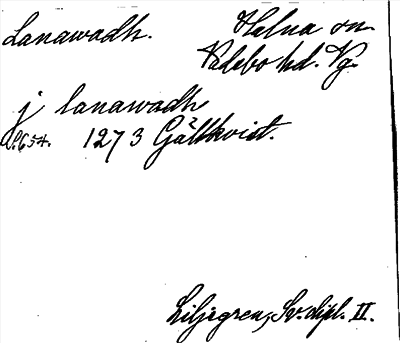 Lanawadh. Helna sn.
Valebo hd. Vg.
j lanawadh
S.654. 1273 Gälkvist.
Liljegren, Sv. dipl. II.